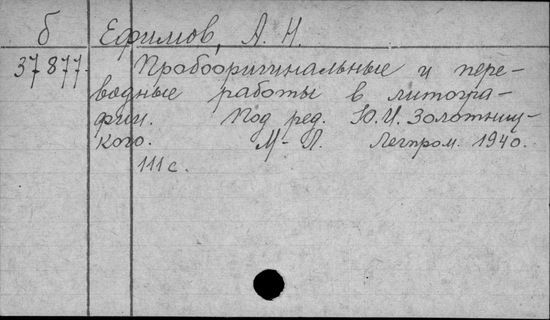 б Ефимов, А. Н.
37877. Пробооригинальные и пере-
водные работы в литогра-
фии. Под ред. Ю. И. Золотниц-
кого. М-Л. Легпром. 1940.
111 с.